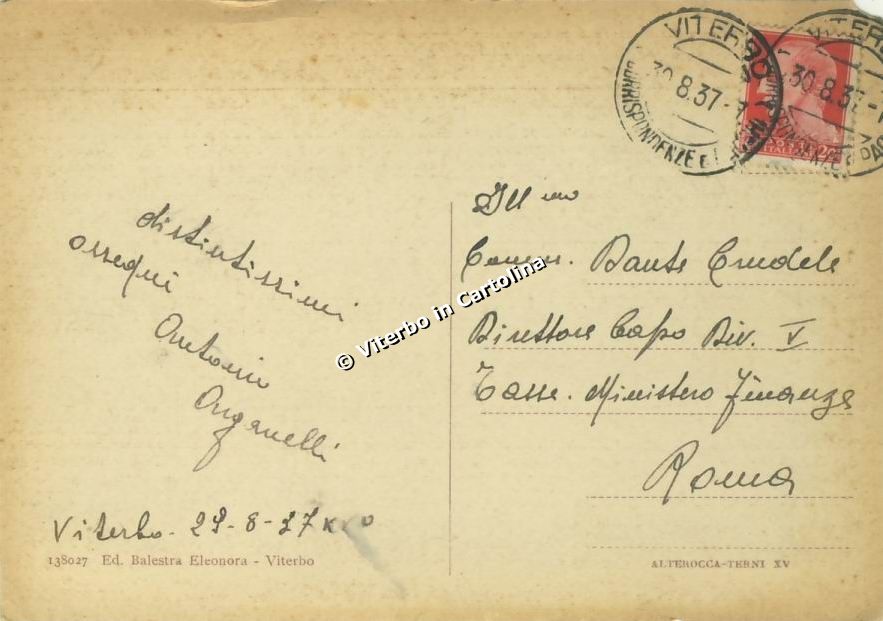 VITERBO
30.8.37-
CORRISPONDENZE E
VITERBO
30.8.37-1
CORRISPONDENZE E PAC
Ill mo
Comm. Dante Crudele
Direttore Capo Div. V
Tasse. Ministero Finanze
Roma
distintissimi
ossequi
Antonio
Anganelli
© Viterbo in Cartolina
Viterbo - 29-8-37
138027 Ed. Balestra Eleonora - Viterbo
ALTEROCCA-TERNI XV